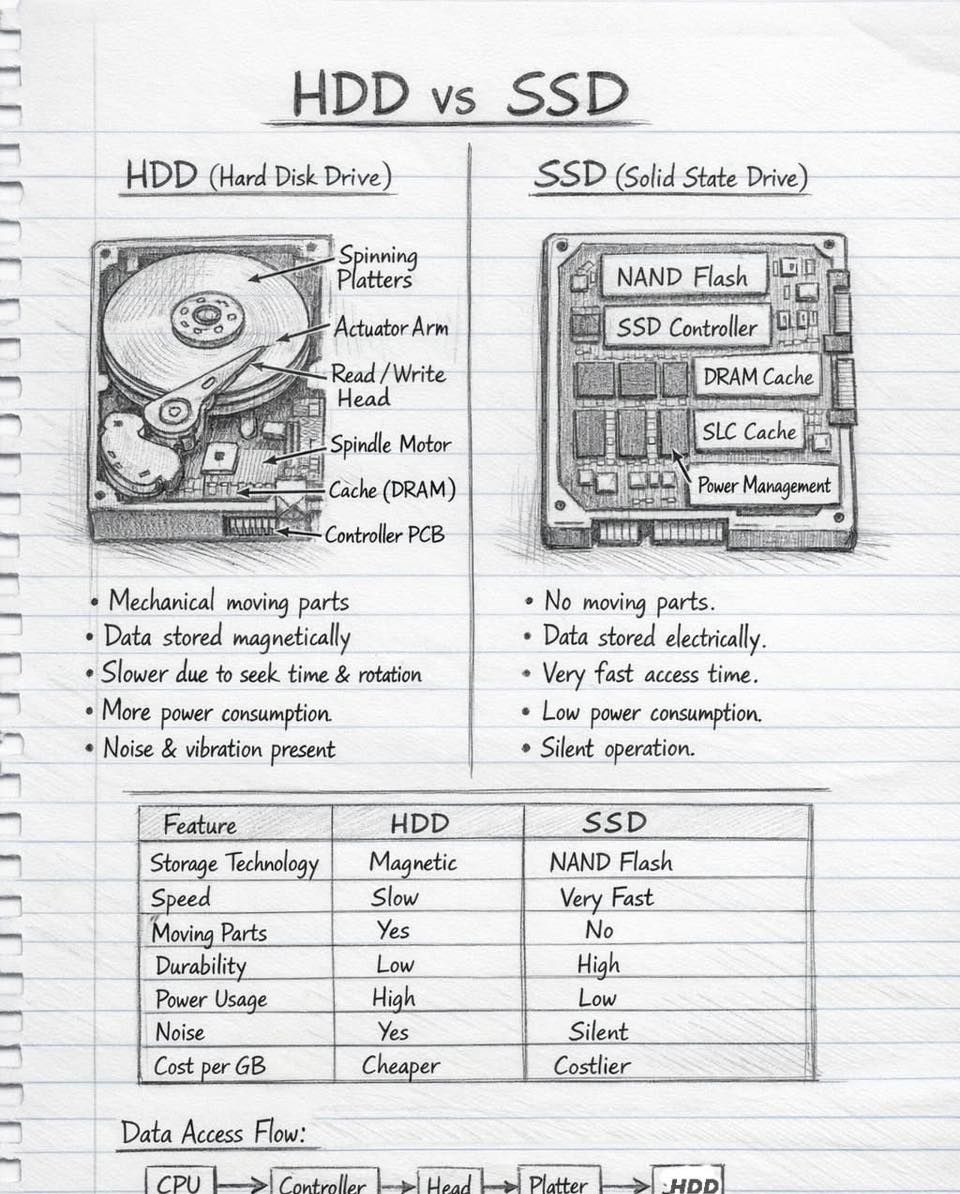 HDD vs SSD
HDD (Hard Disk Drive)
Spinning
Platters
Actuator Arm
Read/Write
Head
Spindle Motor
Cache (DRAM)
Controller PCB
• Mechanical moving parts
• Data stored magnetically
• Slower due to seek time & rotation
• More power consumption
• Noise & vibration present
SSD (Solid State Drive)
NAND Flash
SSD Controller
DRAM Cache
SLC Cache
Power Management
• No moving parts.
• Data stored electrically.
• Very fast access time.
• Low power consumption.
• Silent operation.
Feature HDD SSD
Storage Technology Magnetic NAND Flash
Speed Slow Very Fast
Moving Parts Yes No
Durability Low High
Power Usage High Low
Noise Yes Silent
Cost per GB Cheaper Costlier
Data Access Flow:
CPU → Controller → Head → Platter → HDD